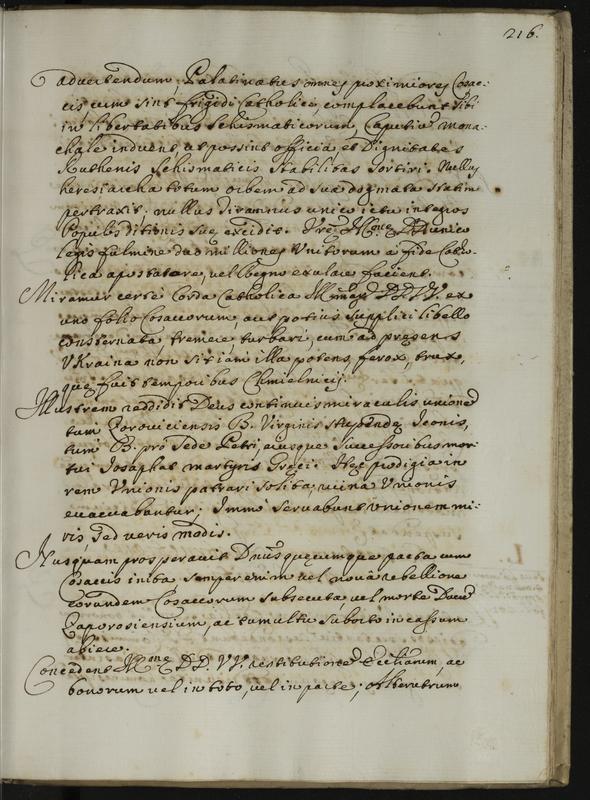 216.
adducendum, Palatinatus omnes proximiores Cosac-
cis cum sint frigidi Catholici, complacebunt sibi
in libertatibus Schismaticorum, Caputia mona-
chale induent, ut possint officia et Dignitates
Ruthenis Schismaticis stabilitas sortiri. Nullus
heresiarcha totum orbem ad sua dogmata statim
pertraxit. nullus Tirannus unico ictu integros
Populos ditionis suę excidit. DD. unico
legis fulmine duo milliones Unitorum a fide Catho-
lica apostatare, vel Regno exulare facient.
Miramur certe Corda Catholica DD. VV. ex
uno folio Cosaccorum, aut potius supplici libello
consternata, tremere turbari, cum ad pręsens
Ukraina non sit iam illa potens, ferox, trux,
quę fuit temporibus Chmielnicij.
Illustrem reddidit Deus continuis miraculis unionem
tum Zoroviciensis B. Virginis stupendę Iconis,
tum B. pro Sede Petri, eiusque successoribus mor-
tui Iosaphat martyris Gręci. Hęc prodigia in
rem Unionis patrari solita, ruina Unionis
evacuabuntur; Immo servabunt unionem mi-
ris, sed veris modis.
Nusquam prosperavit Dnus quęcumque pacta cum
Cosaccis inita semper enim vel nova rebellione
eorundem Cosaccorum subsecuta, vel morte Ducum
Zaporosiensium, ac tumultu suborto in cassum
abiere.
Concedent DD. VV. restitutionem Eccliarum, ac
bonorum vel in toto, vel in parte; Alterutrum